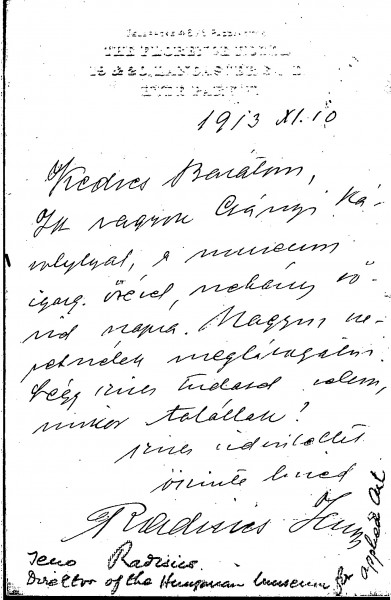 THE FLORENCE
LANCASTER
HYDE PARK
1913 XI. 10
Kedves Barátom,
Itt vagyok Csányi Ká-
rolylyal, a museum
igazg. őrével, néhány rö-
vid napra. Nagyon sze-
retnélek meglátogatni.
Légy szives tudasd velem,
mikor talállak?
szives üdvözlettel
őszinte hived
Radisics Jenő
Jeno Radisics.
Director of the Hungarian Museum
applied Art